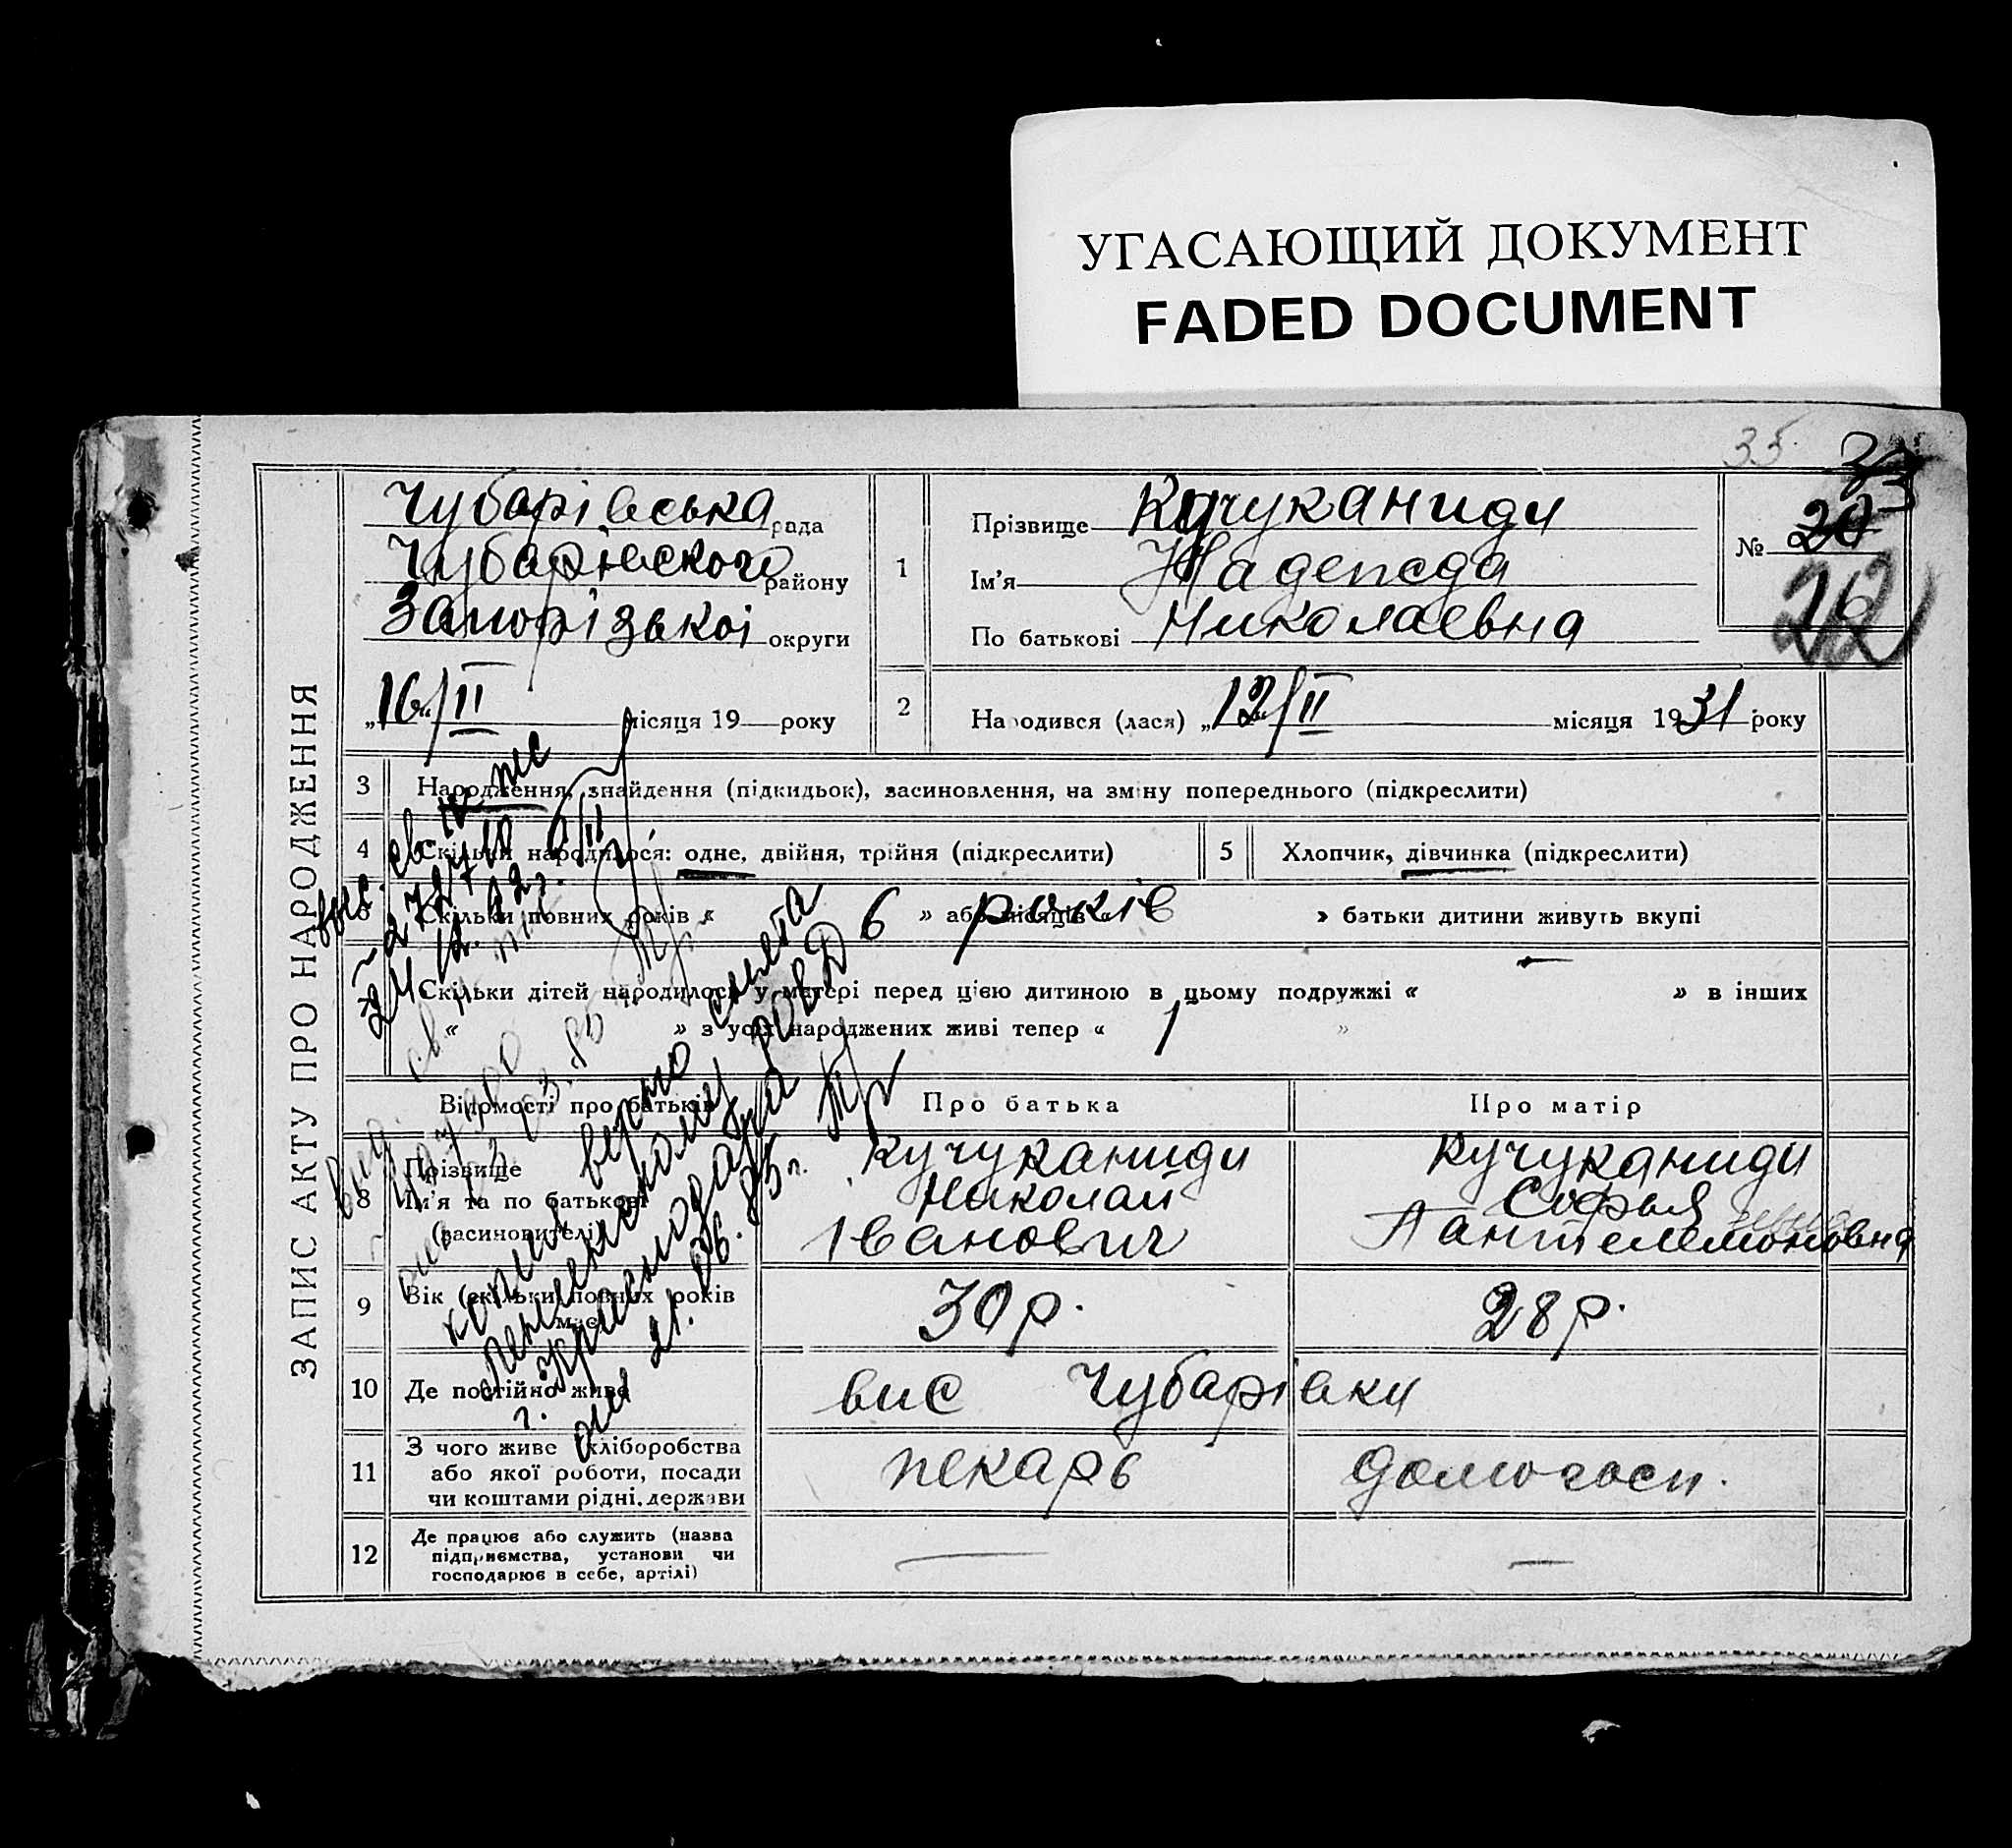 УГАСАЮЩИЙ ДОКУМЕНТ
FADED DOCUMENT
35
ЗАПИС АКТУ ПРО НАРОДЖЕННЯ
Чубарівська рада
Чубарівского району
Запорізької округи
„16“/II місяця 19 року
1
Прізвище Кучуканиди
Ім'я Надежда
По батькові Николаевна
№ 20
2
Народився (лася) „12“/II місяця 1931 року
3 Народження, знайдення (підкидьок), засиновлення, на зміну попереднього (підкреслити)
4 Скільки народилося: одне, двійня, трійня (підкреслити)
5 Хлопчик, дівчинка (підкреслити)
6 Скільки повних років « 6 » або місяців « років » батьки дитини живуть вкупі
Скільки дітей народилося у матері перед цією дитиною в цьому подружжі « — » в інших
« » з усіх народжених живі тепер « 1 »
Відомості про батьків Про батька Про матір
8 Прізвище Ім'я та по батькові (засиновителі)
Кучуканиди Николай Іванович
Кучуканиди Софья Пантелемоновна
9 Вік (скільки повних років має) 30 р. 28 р.
10 Де постійно живе вис Чубарівки
11 З чого живе хліборобства або якої роботи, посади чи коштами рідні, держави пекарь домогосп.
12 Де працює або служить (назва підприємства, установи чи господарює в себе, артілі) — —
копия верна снята
г. Краснодара
от 21.06.85 г.